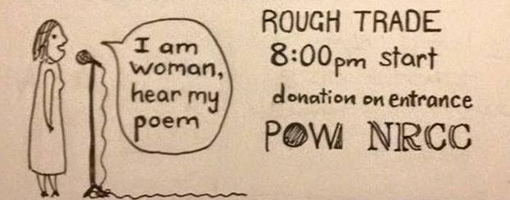 I am
woman,
hear my
poem
ROUGH TRADE
8:00pm start
donation on entrance
POW! NRCC